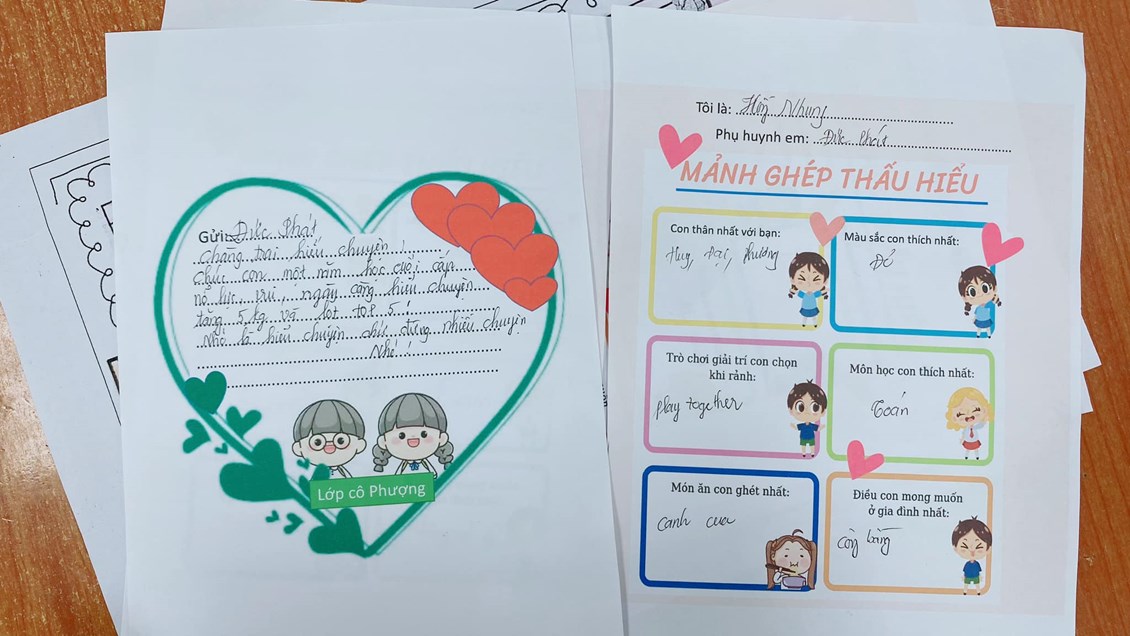 Gửi: Đức Phát
chàng trai hiểu chuyện!
chúc con một năm học cuối cấp
nỗ lực, vui, ngày càng hiểu chuyện
tăng 5 kg và lọt top 5!
Nhớ là hiểu chuyện chứ đừng nhiều chuyện
Nhé!
Lớp cô Phượng
Tôi là: Hồng Nhung
Phụ huynh em: Đức Phát
MẢNH GHÉP THẤU HIỂU
Con thân nhất với bạn:
Huy, Đại, Phương
Màu sắc con thích nhất:
Đỏ
Trò chơi giải trí con chọn
khi rảnh:
play together
Môn học con thích nhất:
Toán
Món ăn con ghét nhất:
canh cua
Điều con mong muốn
ở gia đình nhất:
công bằng